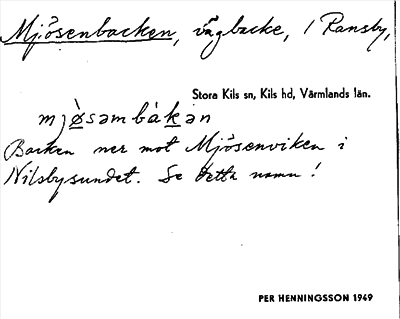 Mjösenbacken, vägbacke, i Ransby,
Stora Kils sn, Kils hd, Värmlands län.
mjø̀sәmbàkәn
Backen ner mot Mjösenviken i
Nilsbysundet. Se detta namn!
PER HENNINGSSON 1949